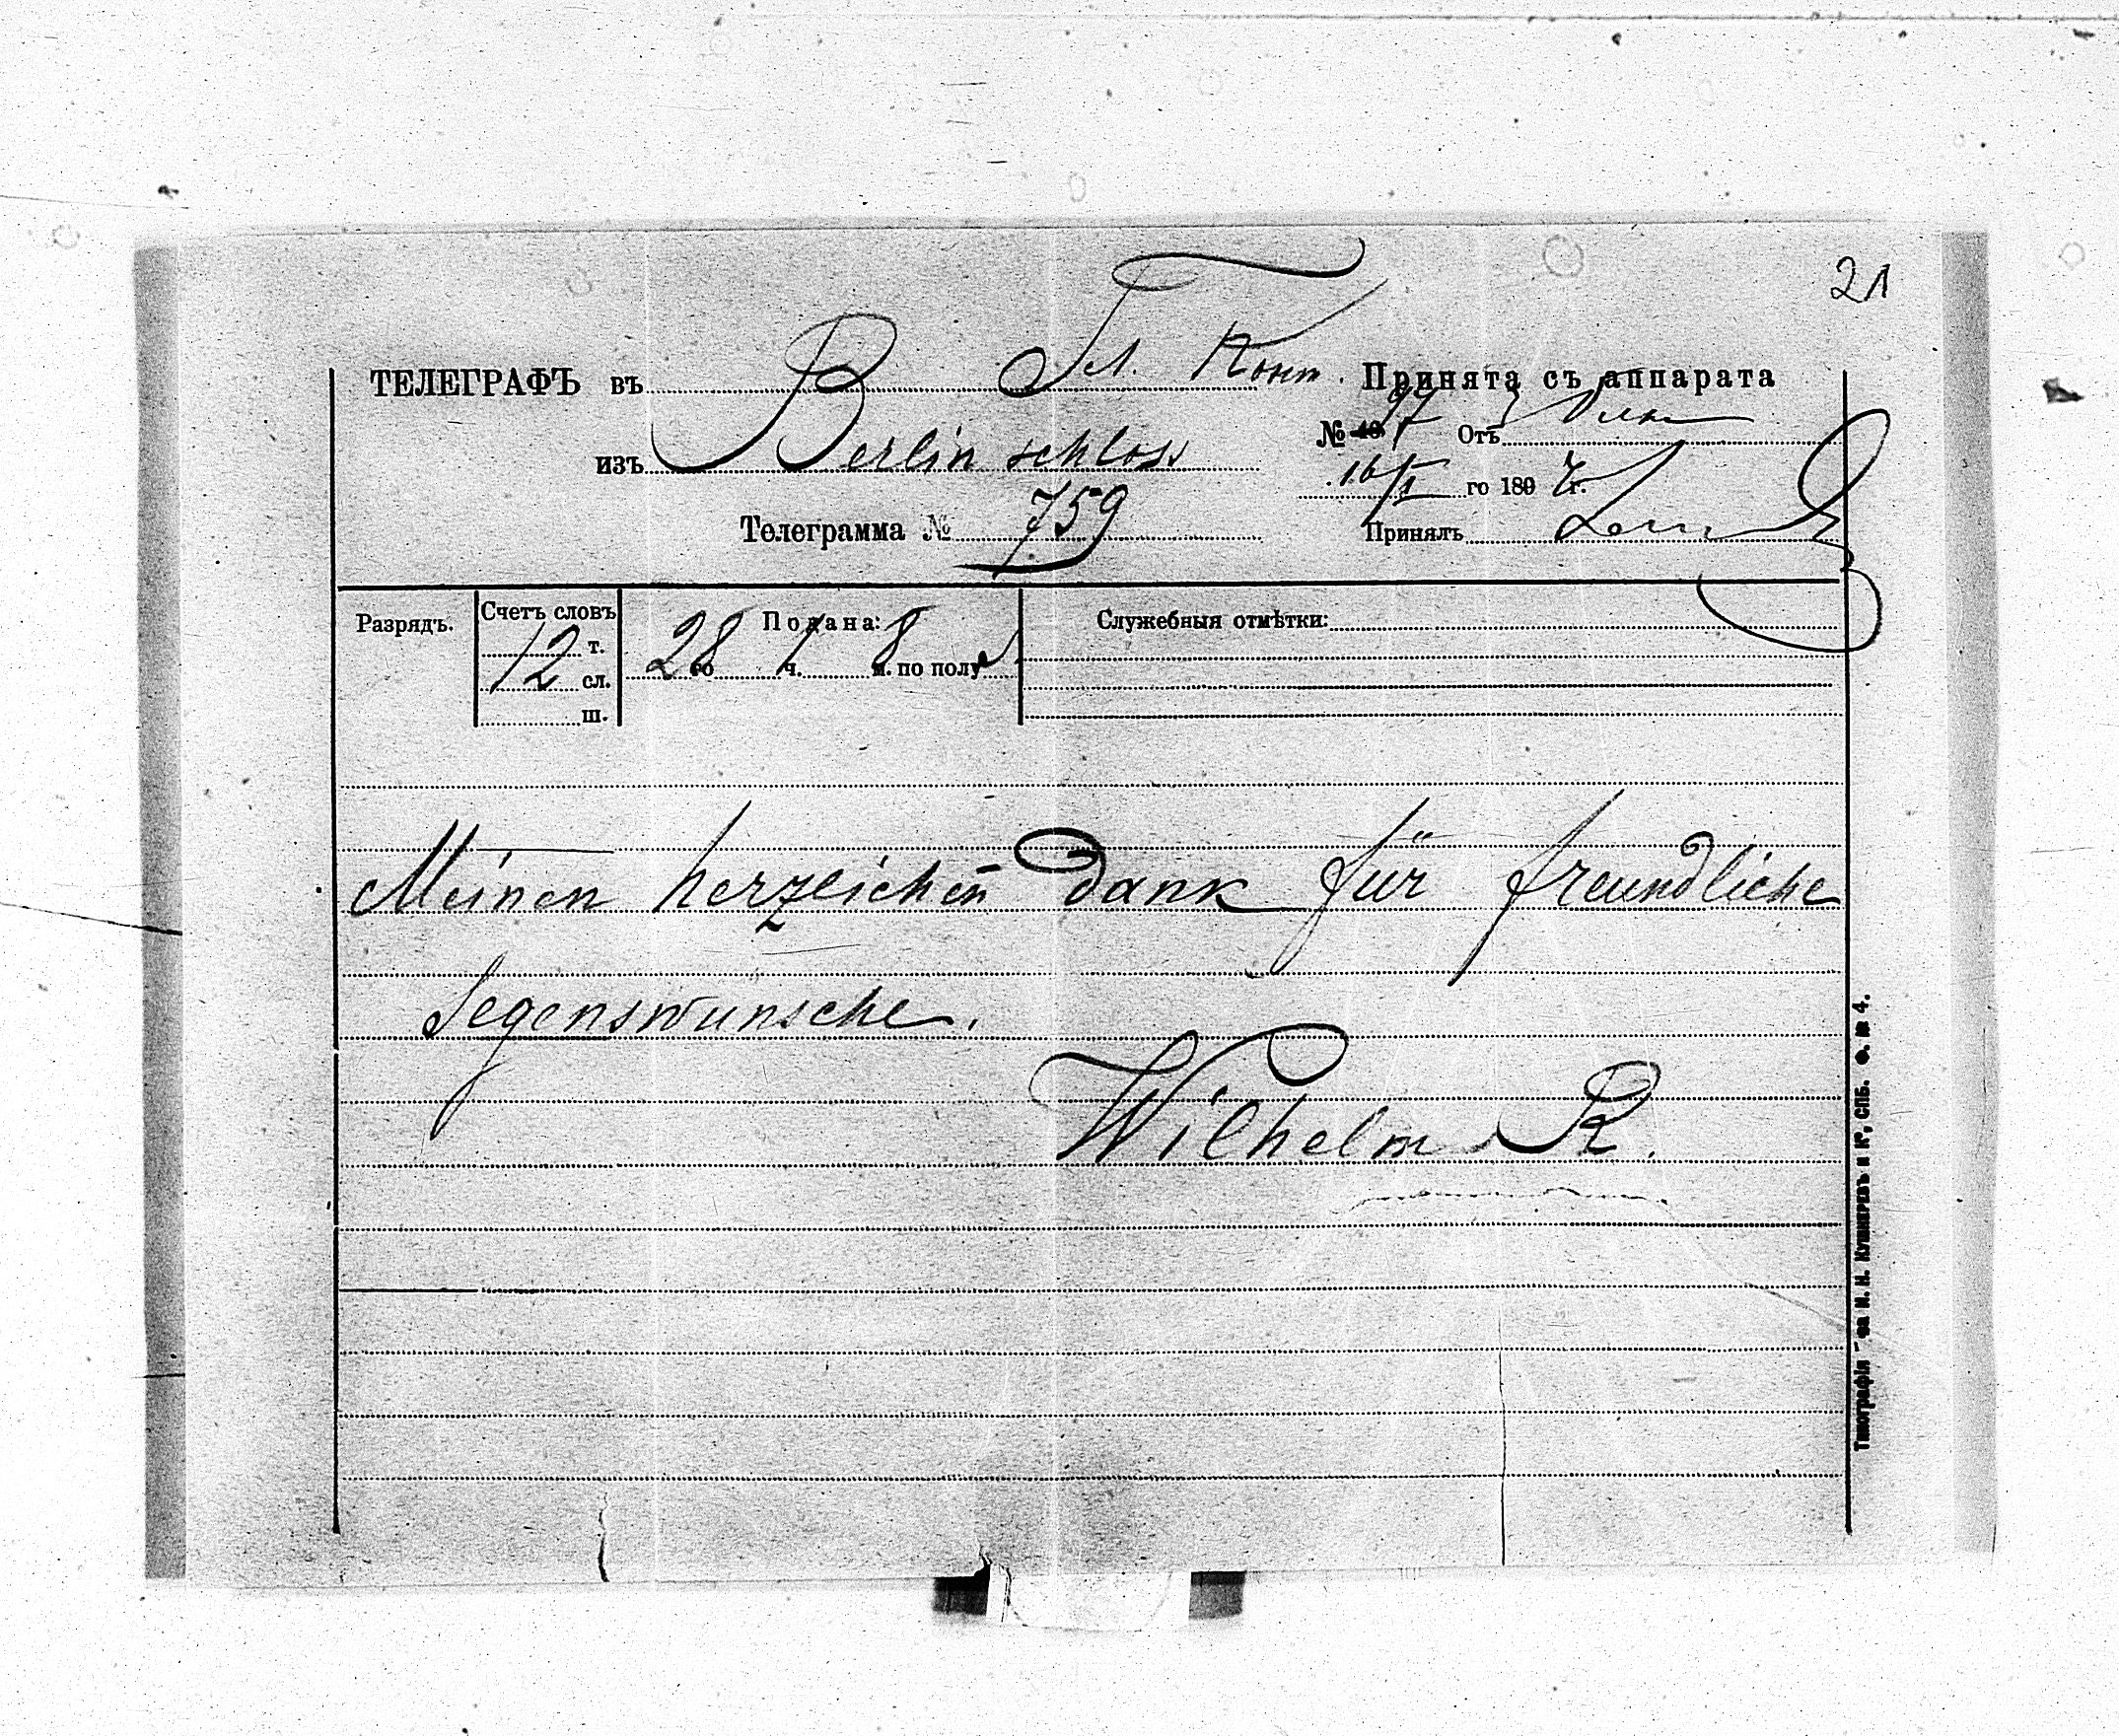 21
ТЕЛЕГРАФЪ въ Гл. Конт. Принята съ аппарата
№ Отъ
изъ Berlin schloss
16/I го 1897 г.
Телеграмма № 759 Принялъ
Разрядъ. Счетъ словъ Подана: Служебныя отмѣтки:
т.
12 сл. 28 го 1 ч. 8 м. по полу
ш.
Meinen herzeichen dank für freundliche
segenswunsche.
Wilhelm R.
Типографія И. Н. Кушнеревъ и Ко, СПБ. Ф. № 4.